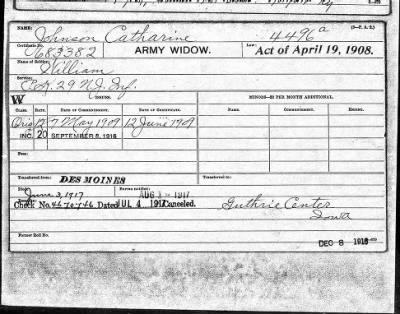 NAME: Johnson Catharine 4496a (3—P. A. 2.)
Certificate No. 683382 ARMY WIDOW. Law: Act of April 19, 1908.
Name of Soldier: William
Service: 29 N.J. Inf.
W ISSUES. MINORS—$2 PER MONTH ADDITIONAL.
CLASS. RATE. DATE OF COMMENCEMENT. DATE OF CERTIFICATE. NAME. COMMENCEMENT. ENDING.
Orig 12 7 May 1909 12 June 1909
INC. 20 SEPTEMBER 8, 1916
Transferred from: DES MOINES Transferred to:
June 3, 1917 1917
Check No. Dated JUL 4 1917 Canceled. Guthrie Center
Iowa
Former Roll No. DEC 8 1916